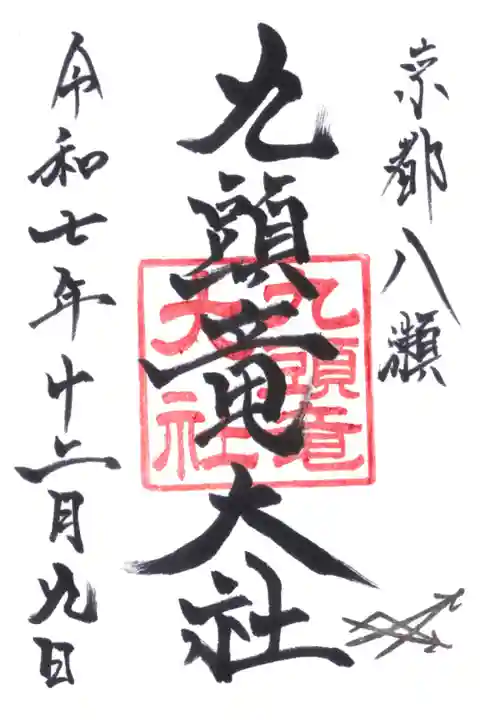 京都八瀬
九頭竜大社
九頭竜
大社
令和七年十二月九日